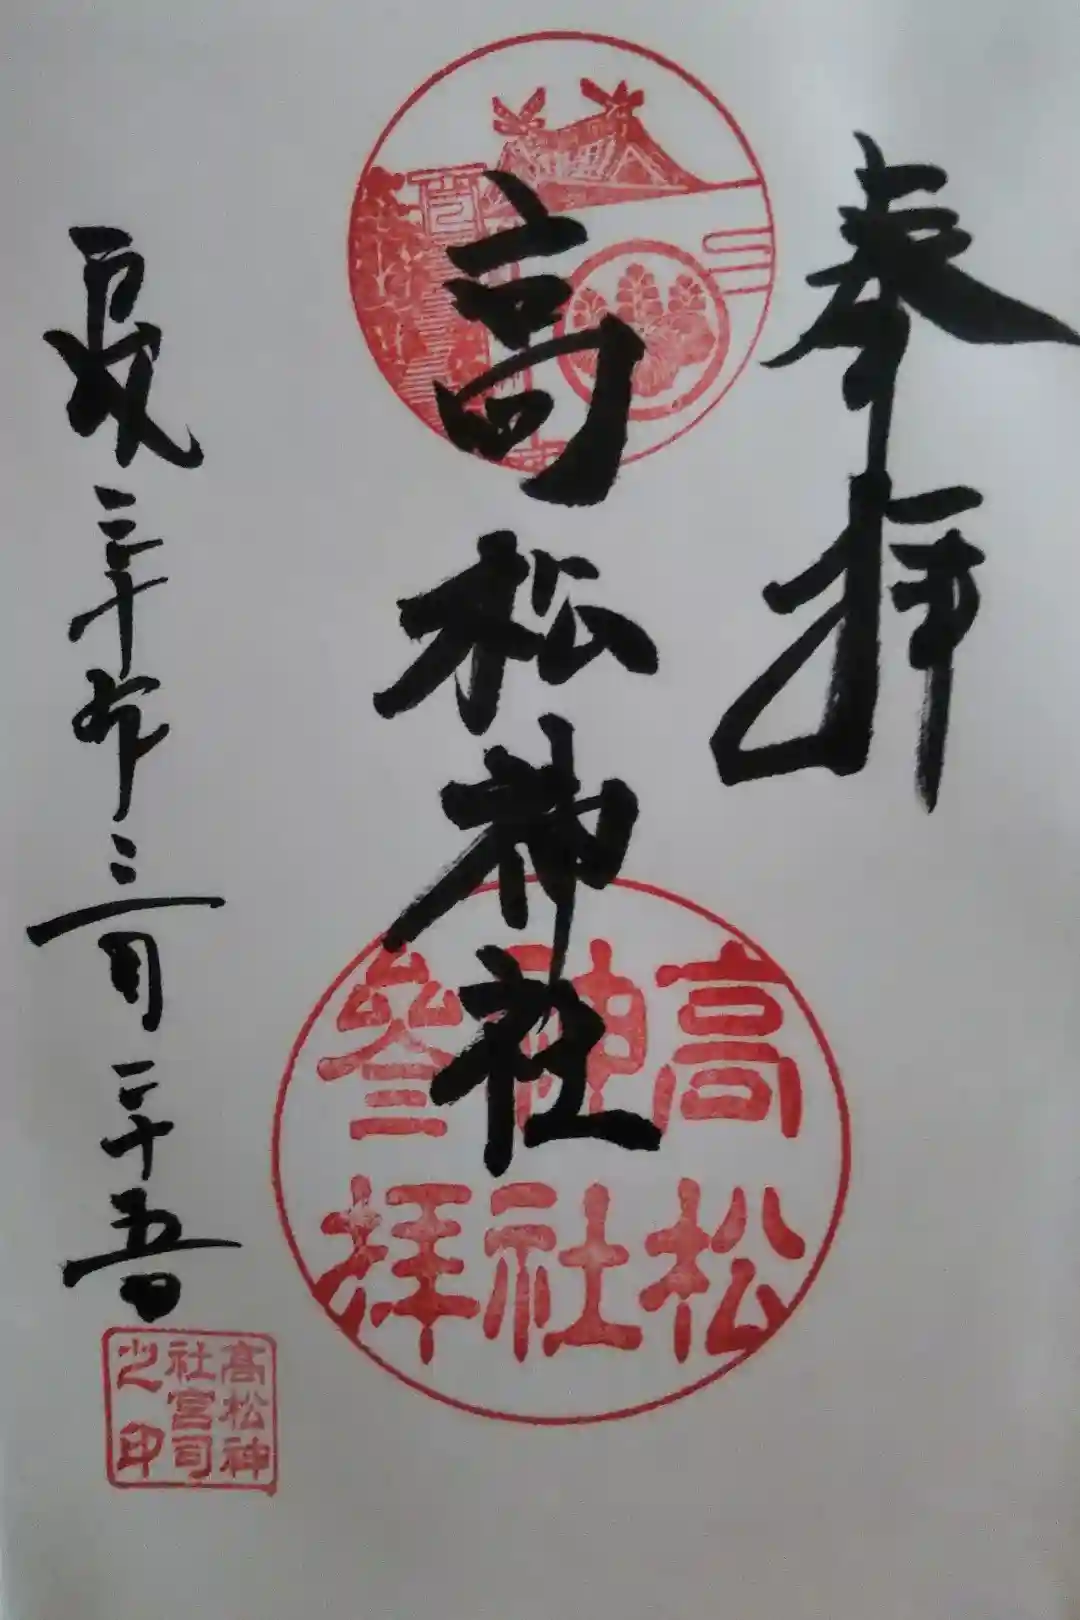 奉拝
高松神社
平成三十年三月二十五日
高松
神社
叄拝
高松神
社宮司
之印